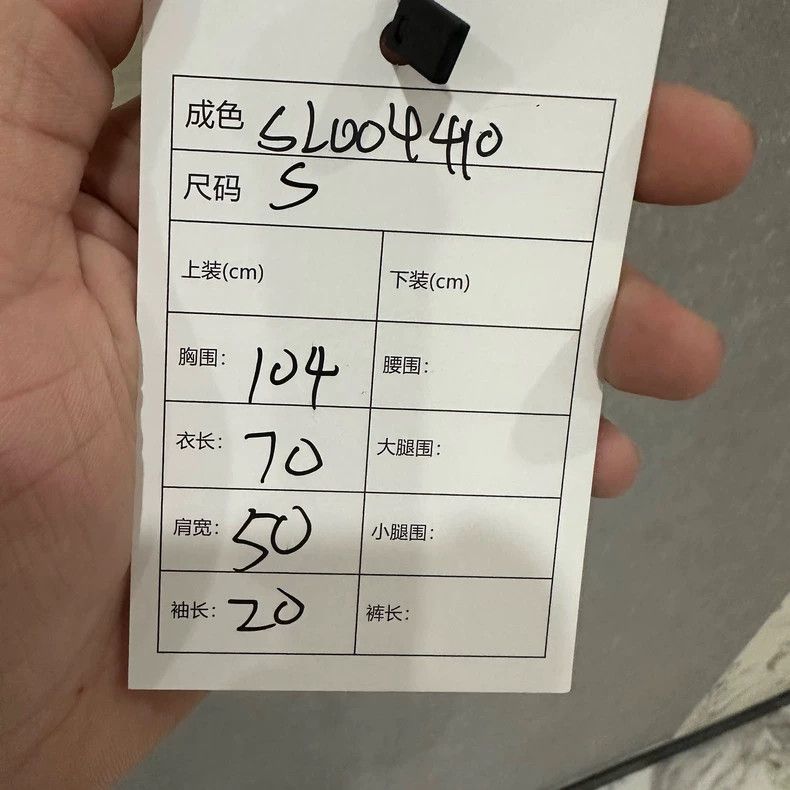 成色 SL004410
尺码 S
上装(cm) 下装(cm)
胸围: 104 腰围:
衣长: 70 大腿围:
肩宽: 50 小腿围:
袖长: 20 裤长: